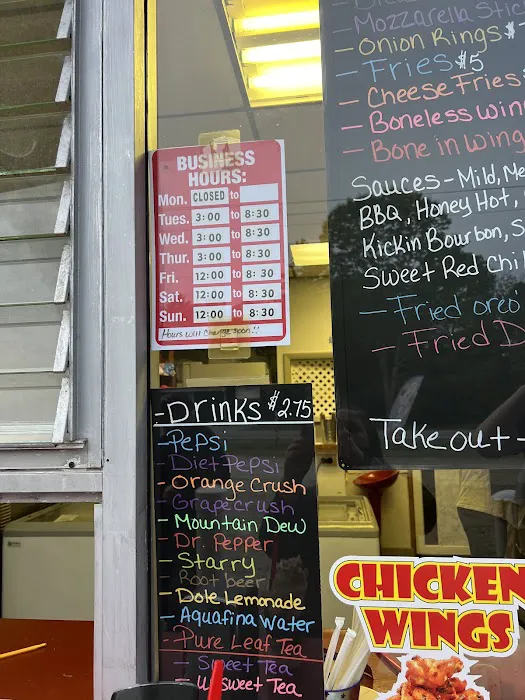 BUSINESS
HOURS:
Mon. CLOSED to
Tues. 3:00 to 8:30
Wed. 3:00 to 8:30
Thur. 3:00 to 8:30
Fri. 12:00 to 8:30
Sat. 12:00 to 8:30
Sun. 12:00 to 8:30
Hours will change soon!!
- Drinks $2.75
- Pepsi
- Diet Pepsi
- Orange Crush
- Grape crush
- Mountain Dew
- Dr. Pepper
- Starry
- Root beer
- Dole Lemonade
- Aquafina Water
- Pure Leaf Tea
- Sweet Tea
- Unsweet Tea
- Mozzarella Stic
- Onion Rings $
- Fries $5
- Cheese Fries
- Boneless Win
- Bone in Wing
Sauces - Mild, Me
BBQ, Honey Hot,
Kickin Bourbon, S
Sweet Red Chil
- Fried oreo'
- Fried D
Take out -
CHICKEN
WINGS